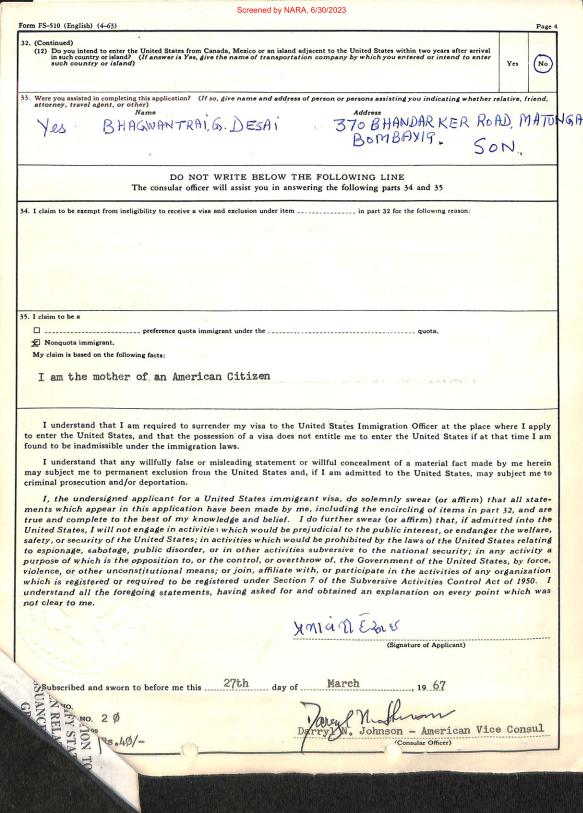 Screened by NARA, 6/30/2023
Form FS-510 (English) (4-63)
Page 4
32. (Continued)
(12) Do you intend to enter the United States from Canada, Mexico or an island adjacent to the United States within two years after arrival
in such country or island? (If answer is Yes, give the name of transportation company by which you entered or intend to enter
such country or island)
Yes No
33. Were you assisted in completing this application? (If so, give name and address of person or persons assisting you indicating whether relative, friend,
attorney, travel agent, or other)
Name Address
Yes BHAGWANTRAI, G. DESAI 370 BHANDARKER ROAD, MATUNGA
BOMBAY19. SON.
DO NOT WRITE BELOW THE FOLLOWING LINE
The consular officer will assist you in answering the following parts 34 and 35
34. I claim to be exempt from ineligibility to receive a visa and exclusion under item in part 32 for the following reason:
35. I claim to be a
preference quota immigrant under the quota.
Nonquota immigrant.
My claim is based on the following facts:
I am the mother of an American Citizen
I understand that I am required to surrender my visa to the United States Immigration Officer at the place where I apply
to enter the United States, and that the possession of a visa does not entitle me to enter the United States if at that time I am
found to be inadmissible under the immigration laws.
I understand that any willfully false or misleading statement or willful concealment of a material fact made by me herein
may subject me to permanent exclusion from the United States and, if I am admitted to the United States, may subject me to
criminal prosecution and/or deportation.
I, the undersigned applicant for a United States immigrant visa, do solemnly swear (or affirm) that all state-
ments which appear in this application have been made by me, including the encircling of items in part 32, and are
true and complete to the best of my knowledge and belief. I do further swear (or affirm) that, if admitted into the
United States, I will not engage in activities which would be prejudicial to the public interest, or endanger the welfare,
safety, or security of the United States; in activities which would be prohibited by the laws of the United States relating
to espionage, sabotage, public disorder, or in other activities subversive to the national security; in any activity a
purpose of which is the opposition to, or the control, or overthrow of, the Government of the United States, by force,
violence, or other unconstitutional means; or join, affiliate with, or participate in the activities of any organization
which is registered or required to be registered under Section 7 of the Subversive Activities Control Act of 1950. I
understand all the foregoing statements, having asked for and obtained an explanation on every point which was
not clear to me.
(Signature of Applicant)
Subscribed and sworn to before me this 27th day of March, 1967
NO. 20
Rs.40/-
Darryl N. Johnson - American Vice Consul
(Consular Officer)